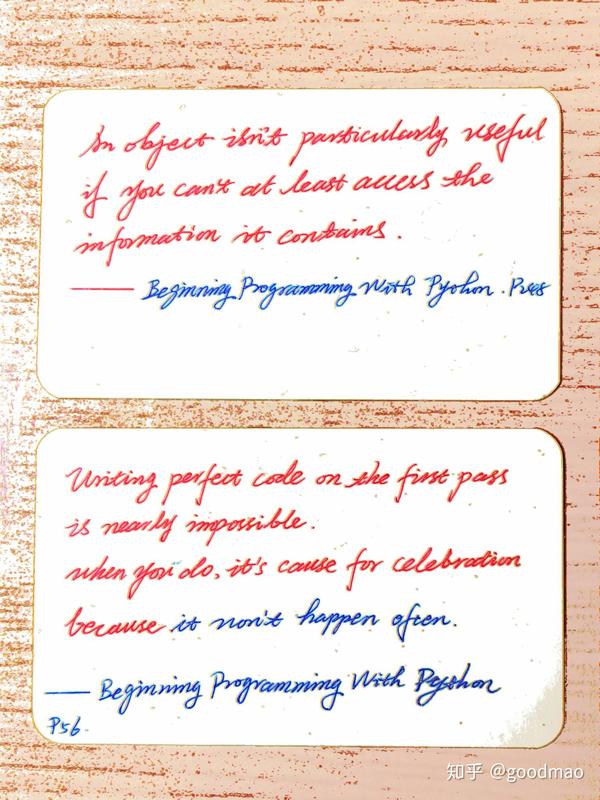 An object isn't particularly useful
if you can't at least access the
information it contains.
—— Beginning Programming With Python.
Writing perfect code on the first pass
is nearly impossible.
when you do, it's cause for celebration
because it won't happen often.
—— Beginning Programming With Python
P56.
知乎 @goodmao